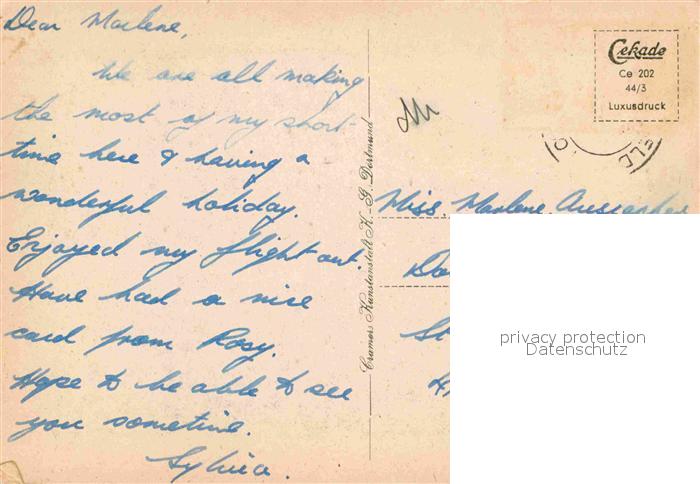 Dear Marlene,
We are all making
the most of my short
time here & having a
wonderful holiday.
Enjoyed my flight out.
Have had a nice
card from Rosy.
Hope to be able to see
you sometime.
Sylvia.
Cramers Kunstanstalt K.-G. Dortmund
Cekade
Ce 202
44/3
Luxusdruck
Miss, Marlene,
St
privacy protection
Datenschutz